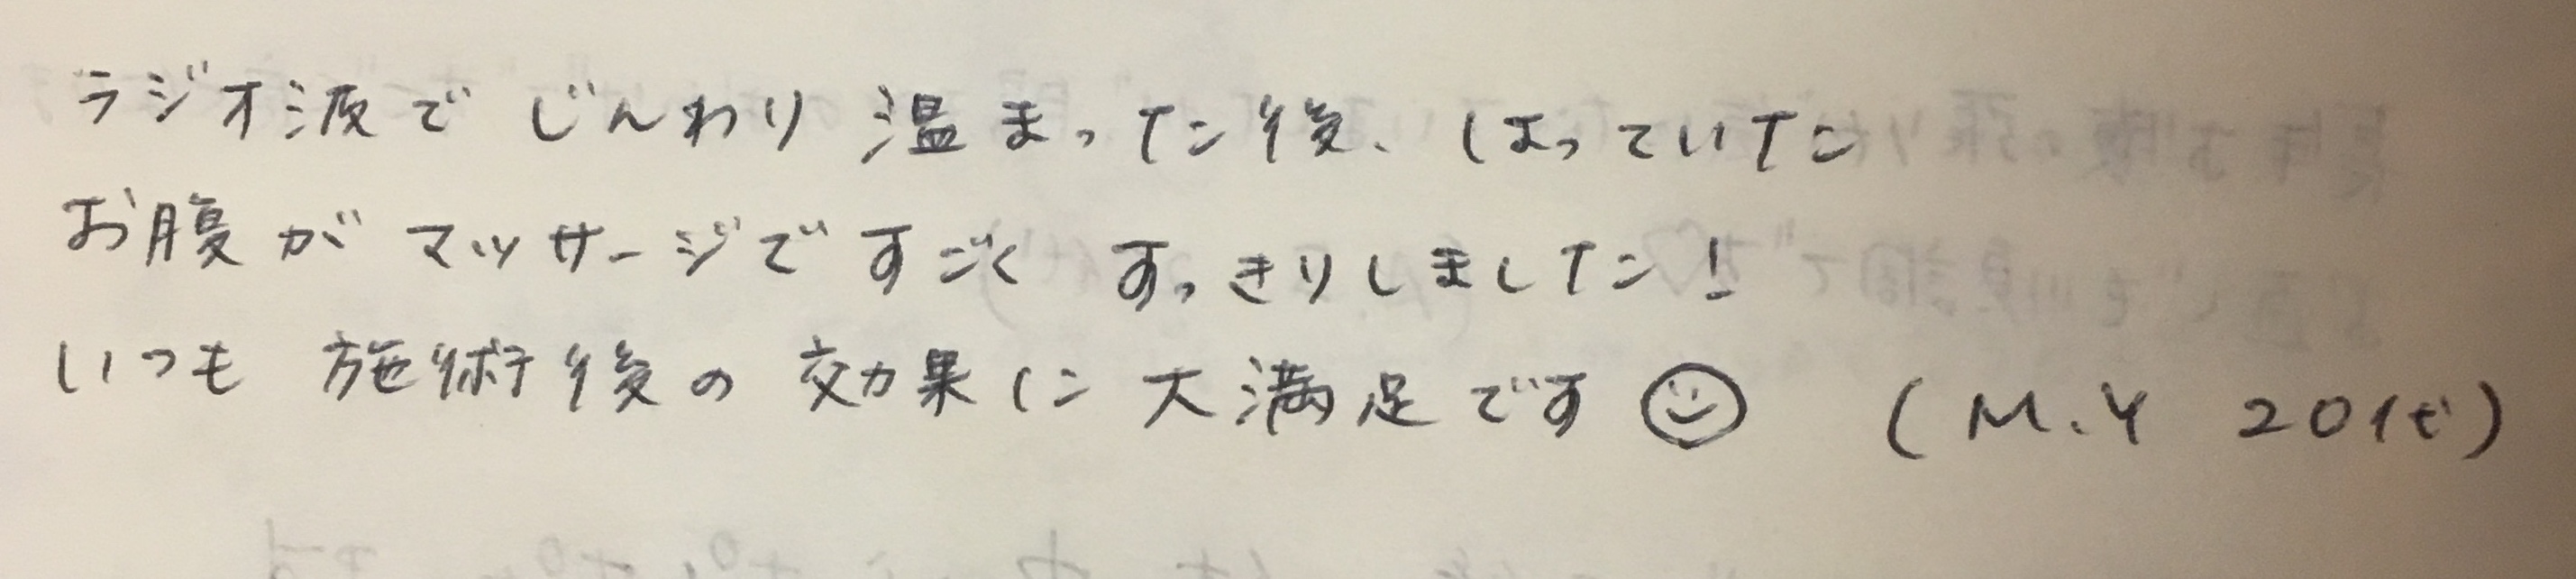 ラジオ波で じんわり 温まった後、はっていた
お腹が マッサージで すごく すっきりしました!
いつも 施術後の 効果に 大満足です☺ (M.Y 20代)